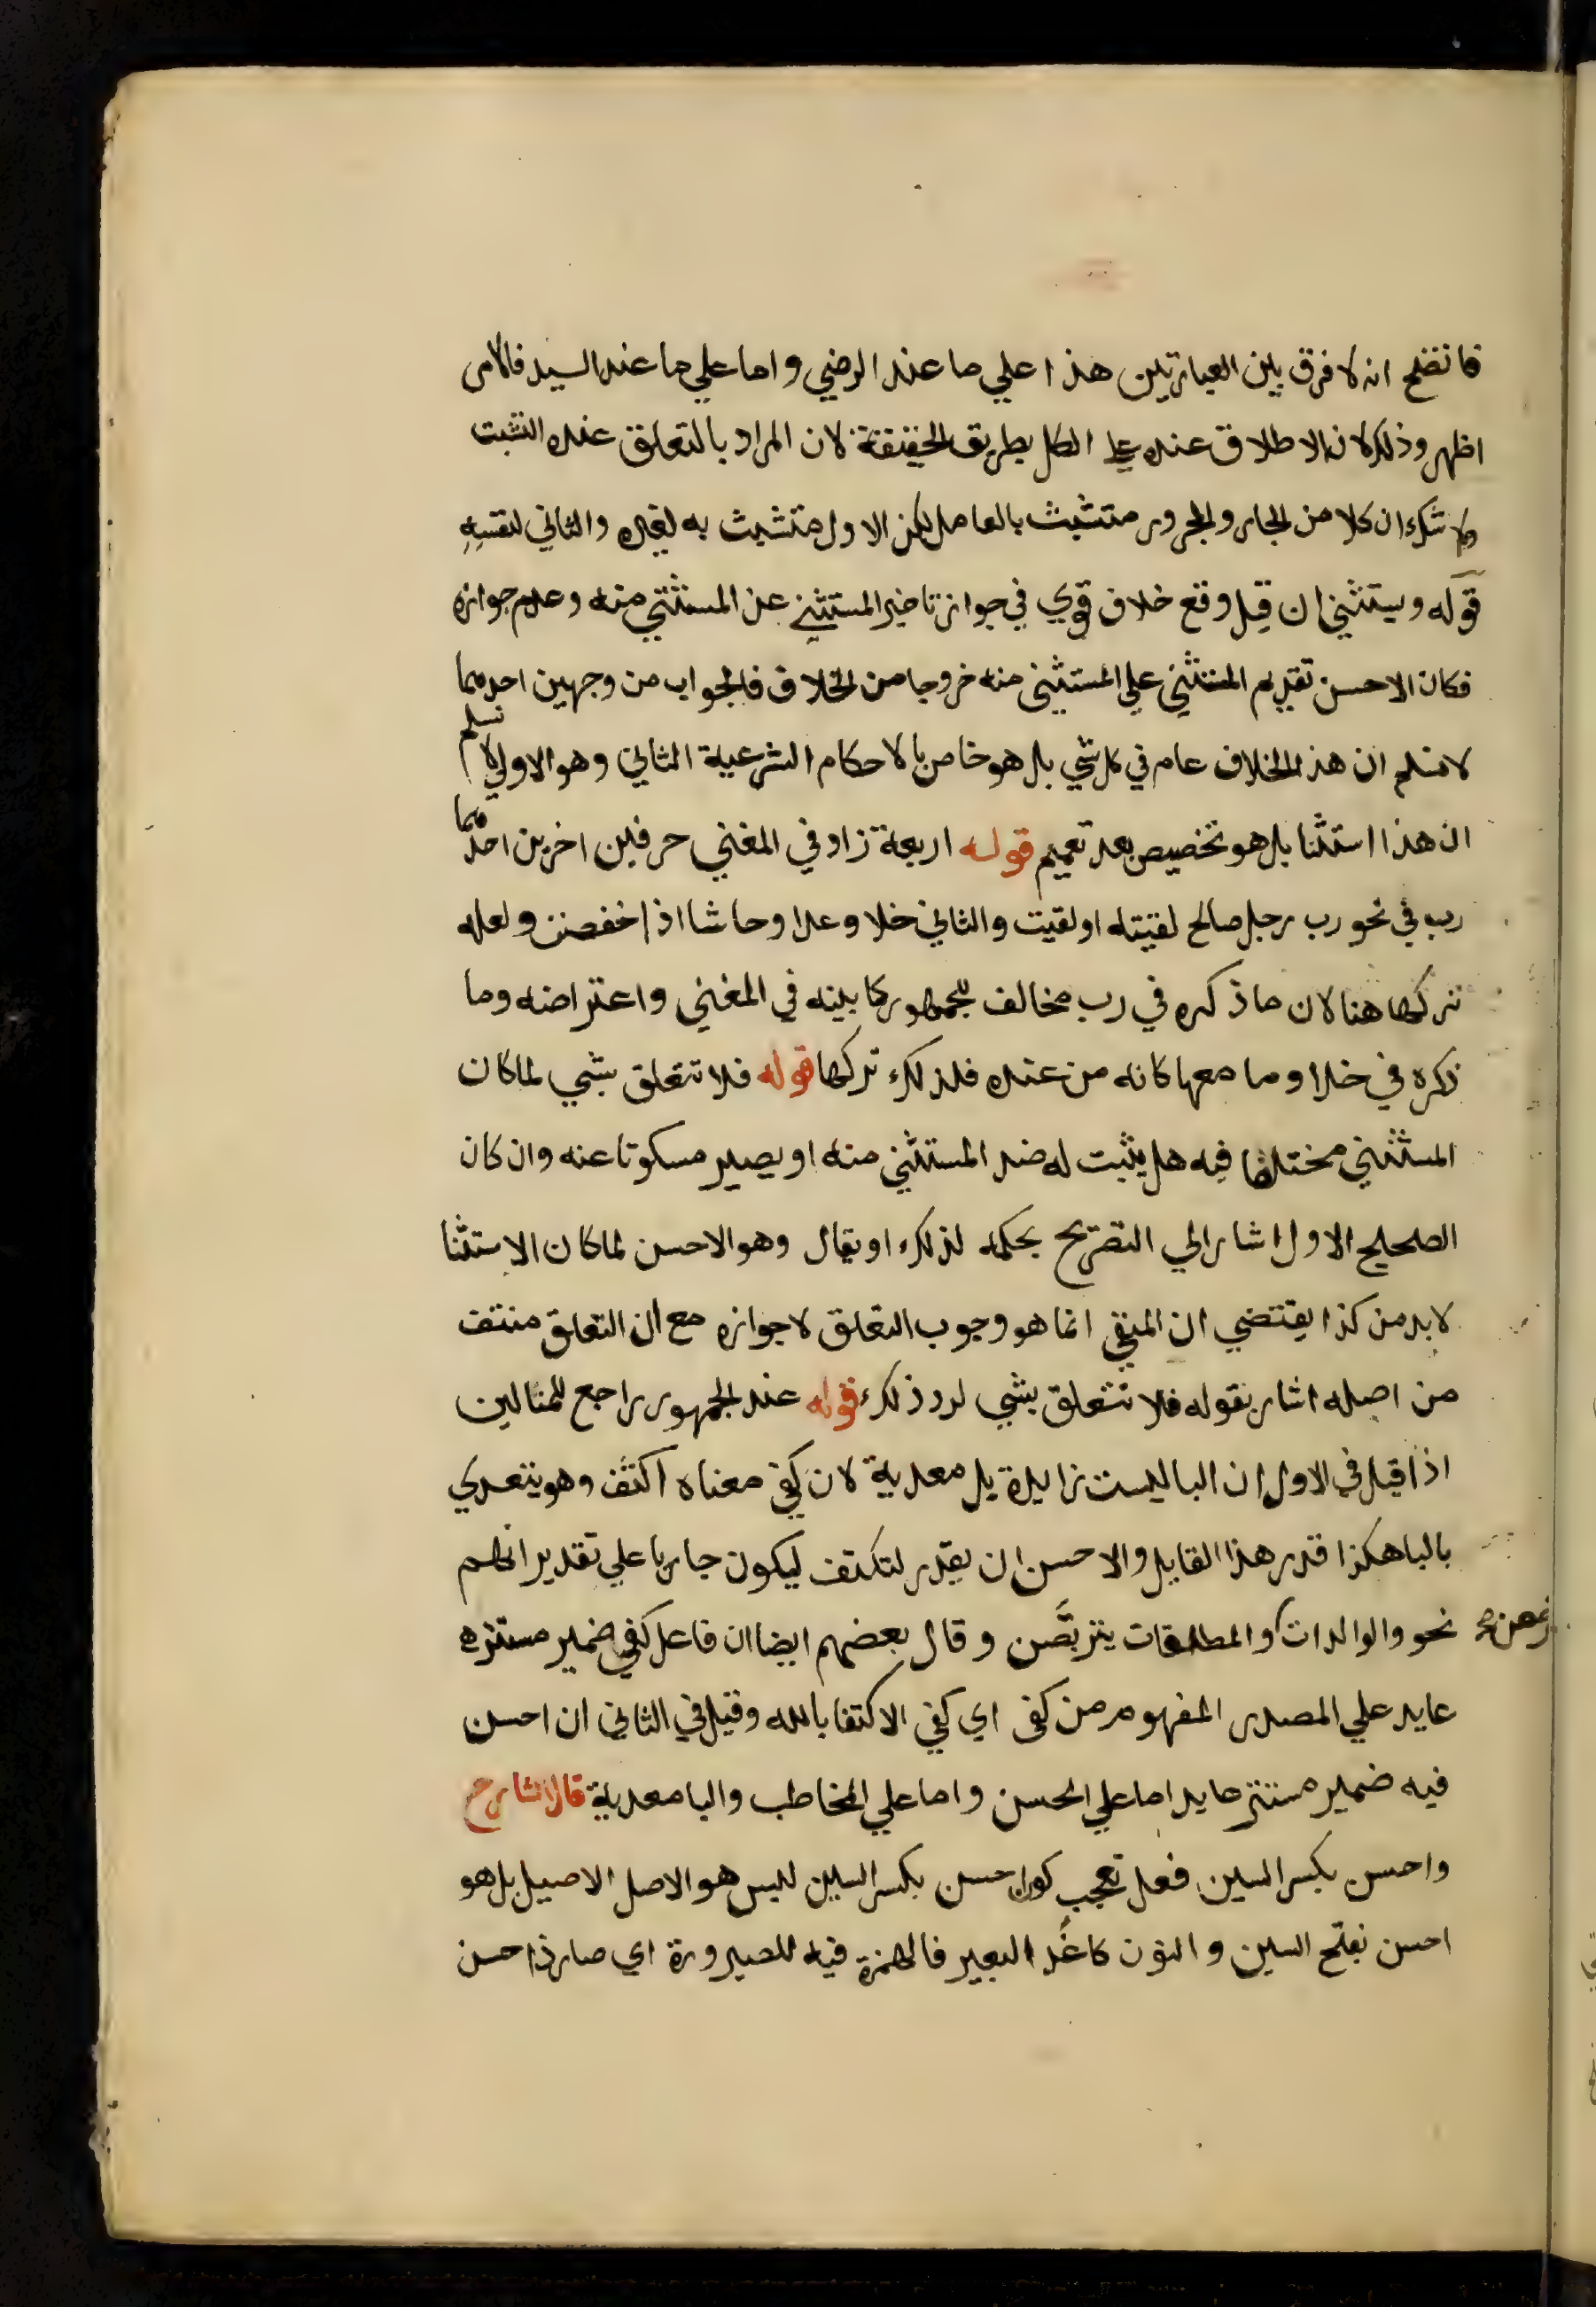 فاتضح انه لا فرق بين العبارتين هذا علي ما عند الرضي واما علي ما عند السيد فالامر
اظهر وذلك لان الاطلاق عنده علي الكل بطريق الحقيقة لان المراد بالتعلق عنده التشبث
ولا شك ان كلا من الجار والمجرور متشبث بالعامل لكن الاول متشبث به لغيره والثاني لنفسه
قوله ويستثني ان قيل وقع خلاف قوي في جواز تاخير المستثني عن المستثني منه وعدم جوازه
فكان الاحسن تقديم المستثني علي المستثني منه خروجا من الخلاف فالجواب من وجهين احدهما
لا نسلم ان هذا الخلاف عام في كل شي بل هو خاص بالاحكام الشرعية الثاني وهو الاولي لا نسلم
ان هذا استثنا بل هو تخصيص بعد تعميم قوله اربعة زاد في المغني حرفين اخرين احدهما
رب في نحو رب رجل صالح لقيته او لقيت والثاني خلا وعدا وحاشا اذا خفضن ولعله
تركها هنا لان ما ذكره في رب مخالف للجمهور كما بينه في المغني واعتراضه وما
ذكره في خلا وما معها كانه من عنده فلذلك تركها قوله فلا تتعلق بشي لما كان
المستثني مختلفا فيه هل يثبت له ضد المستثني منه او يصير مسكوتا عنه وان كان
الصحيح الاول اشار الي التصريح بحكمه لذلك او يقال وهو الاحسن لما كان الاستثنا
لا بد من كذا يقتضي ان المنفي انما هو وجوب التعلق لا جوازه مع ان التعلق منتف
من اصله اشار بقوله فلا تتعلق بشي لرد ذلك قوله عند الجمهور راجع للمثالين
اذا قيل في الاول ان الباليست زايدة بل معدية لان كفي معناه اكتف وهو يتعدي
بالبا هكذا قدر هذا القايل والاحسن ان يقدر لتكتف ليكون جاريا علي تقدير انهم
نحو والوالدات يرضعن والمطلقات يتربصن وقال بعضهم ايضا ان فاعل كفي ضمير مستتر
عايد علي المصدر المفهوم من كفي اي كفي الاكتفا بالله وقيل في الثاني ان احسن
فيه ضمير مستتر عايد اما علي الحسن واما علي المخاطب والبا معدية قال الشارح
واحسن بكسر السين فعل تعجب كون احسن بكسر السين ليس هو الاصل الاصيل بل هو
احسن بفتح السين والنون كاغد البعير فالهمزة فيه للصيرورة اي صار ذا حسن